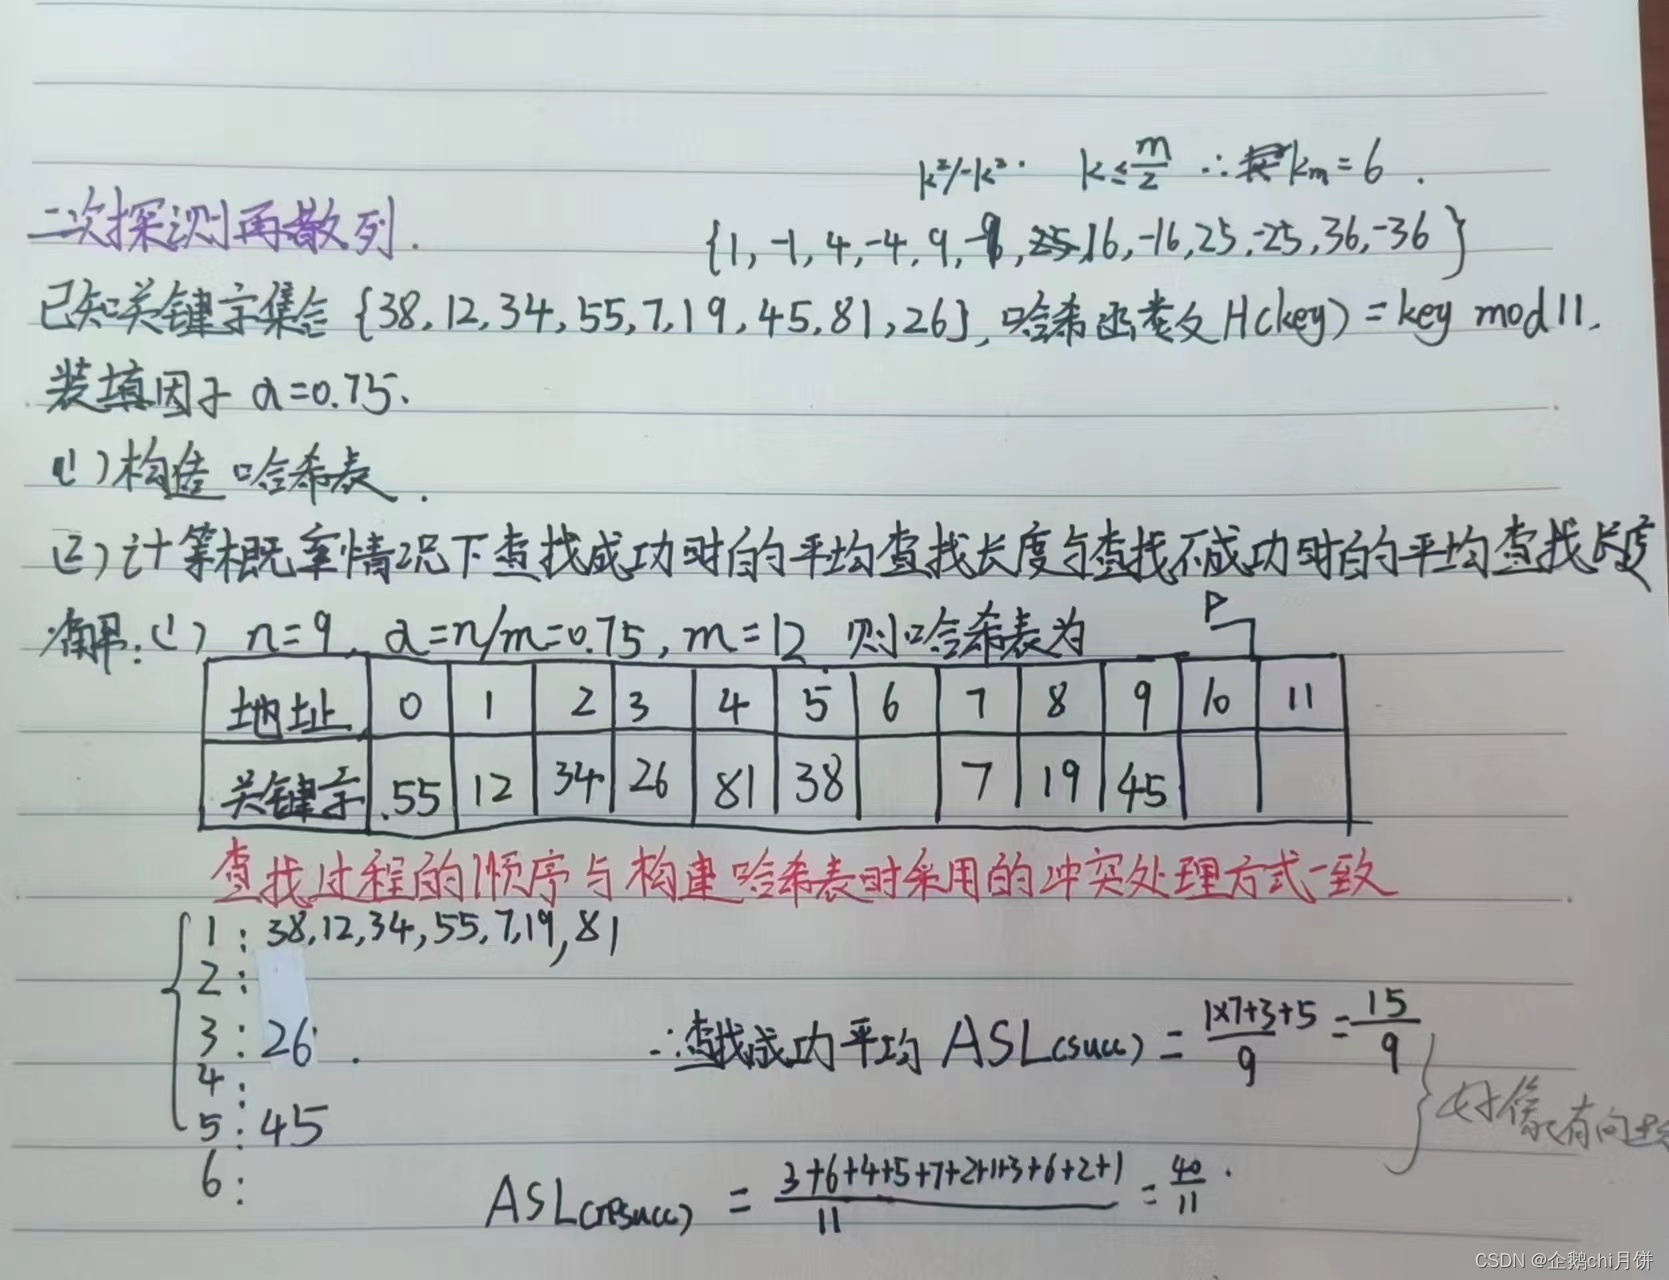 k²/-k². k≤m/2 ∴ km=6.
二次探测再散列.
{1,-1,4,-4,9,-9,16,-16,25,-25,36,-36}
已知关键字集合{38,12,34,55,7,19,45,81,26},哈希函数为H(key)=key mod 11.
装填因子α=0.75.
(1)构造哈希表.
(2)计算等概率情况下查找成功时的平均查找长度与查找不成功时的平均查找长度
解:(1) n=9, α=n/m=0.75, m=12 则哈希表为
地址 0 1 2 3 4 5 6 7 8 9 10 11
关键字 55 12 34 26 81 38 7 19 45
查找过程的顺序与构建哈希表时采用的冲突处理方式一致
1: 38,12,34,55,7,19,81
2:
3: 26.
∴查找成功平均ASL(succ) = (1×7+3+5)/9 = 15/9
4:
5: 45
好像有问题
6:
ASL = (3+6+4+5+7+2+1+3+6+2+1)/11 = 40/11.
CSDN @企鹅chi月饼